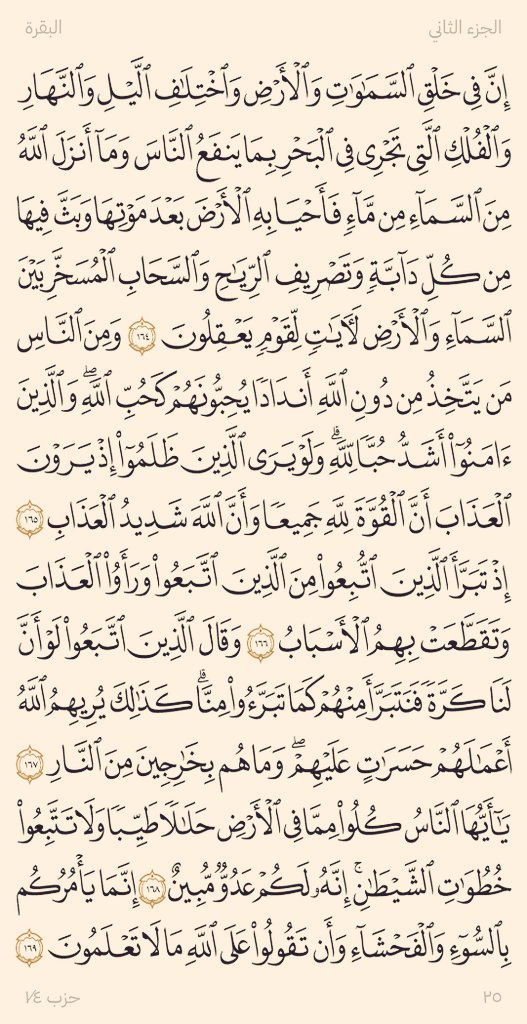 الجزء الثاني البقرة
إِنَّ فِى خَلْقِ ٱلسَّمَـٰوَٰتِ وَٱلْأَرْضِ وَٱخْتِلَـٰفِ ٱلَّيْلِ وَٱلنَّهَارِ
وَٱلْفُلْكِ ٱلَّتِى تَجْرِى فِى ٱلْبَحْرِ بِمَا يَنفَعُ ٱلنَّاسَ وَمَآ أَنزَلَ ٱللَّهُ
مِنَ ٱلسَّمَآءِ مِن مَّآءٍ فَأَحْيَا بِهِ ٱلْأَرْضَ بَعْدَ مَوْتِهَا وَبَثَّ فِيهَا
مِن كُلِّ دَآبَّةٍ وَتَصْرِيفِ ٱلرِّيَـٰحِ وَٱلسَّحَابِ ٱلْمُسَخَّرِ بَيْنَ
ٱلسَّمَآءِ وَٱلْأَرْضِ لَـَٔايَـٰتٍ لِّقَوْمٍ يَعْقِلُونَ ١٦٤ وَمِنَ ٱلنَّاسِ
مَن يَتَّخِذُ مِن دُونِ ٱللَّهِ أَندَادًا يُحِبُّونَهُمْ كَحُبِّ ٱللَّهِ ۖ وَٱلَّذِينَ
ءَامَنُوٓا۟ أَشَدُّ حُبًّا لِّلَّهِ ۗ وَلَوْ يَرَى ٱلَّذِينَ ظَلَمُوٓا۟ إِذْ يَرَوْنَ
ٱلْعَذَابَ أَنَّ ٱلْقُوَّةَ لِلَّهِ جَمِيعًا وَأَنَّ ٱللَّهَ شَدِيدُ ٱلْعَذَابِ ١٦٥
إِذْ تَبَرَّأَ ٱلَّذِينَ ٱتُّبِعُوا۟ مِنَ ٱلَّذِينَ ٱتَّبَعُوا۟ وَرَأَوُا۟ ٱلْعَذَابَ
وَتَقَطَّعَتْ بِهِمُ ٱلْأَسْبَابُ ١٦٦ وَقَالَ ٱلَّذِينَ ٱتَّبَعُوا۟ لَوْ أَنَّ
لَنَا كَرَّةً فَنَتَبَرَّأَ مِنْهُمْ كَمَا تَبَرَّءُوا۟ مِنَّا ۗ كَذَٰلِكَ يُرِيهِمُ ٱللَّهُ
أَعْمَـٰلَهُمْ حَسَرَٰتٍ عَلَيْهِمْ ۖ وَمَا هُم بِخَـٰرِجِينَ مِنَ ٱلنَّارِ ١٦٧
يَـٰٓأَيُّهَا ٱلنَّاسُ كُلُوا۟ مِمَّا فِى ٱلْأَرْضِ حَلَـٰلًا طَيِّبًا وَلَا تَتَّبِعُوا۟
خُطُوَٰتِ ٱلشَّيْطَـٰنِ ۚ إِنَّهُۥ لَكُمْ عَدُوٌّ مُّبِينٌ ١٦٨ إِنَّمَا يَأْمُرُكُم
بِٱلسُّوٓءِ وَٱلْفَحْشَآءِ وَأَن تَقُولُوا۟ عَلَى ٱللَّهِ مَا لَا تَعْلَمُونَ ١٦٩
٢٥ حزب ٧٤